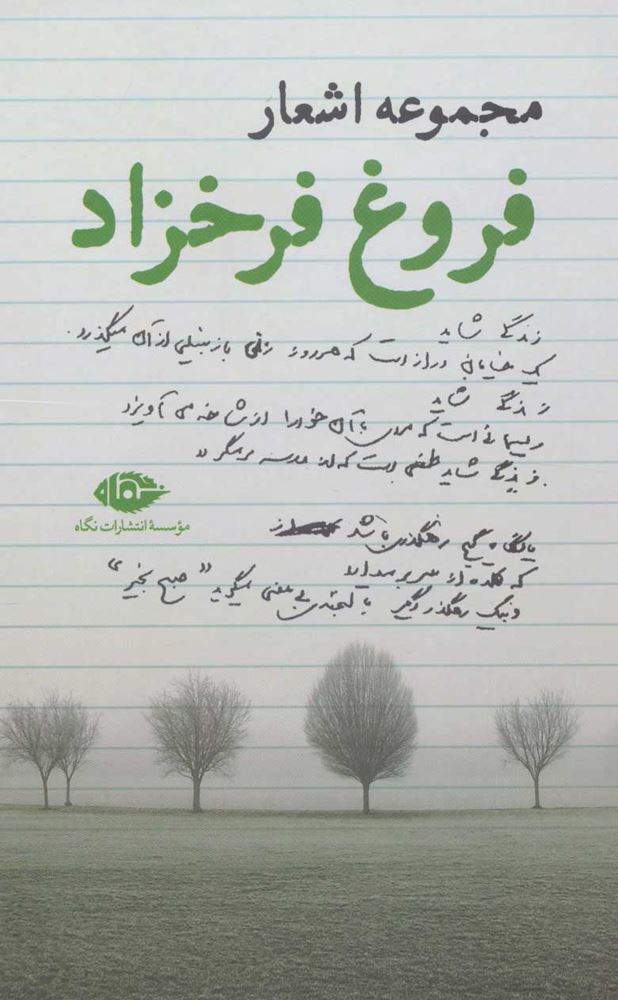 مجموعه اشعار
فروغ فرخزاد
زندگی شاید
یک خیابان دراز است که هر روز زنی با زنبیلی از آن میگذرد.
زندگی شاید
ریسمانی است که مردی با آن خود را از شاخه می آویزد
زندگی شاید طفلی است که از مدرسه بر میگردد
یا نگاه گیج رهگذری باشد
که کلاه از سر بر میدارد
و بیک رهگذر دیگر با لبخندی بی معنی میگوید "صبح بخیر"
نگاه
مؤسسهٔ انتشارات نگاه